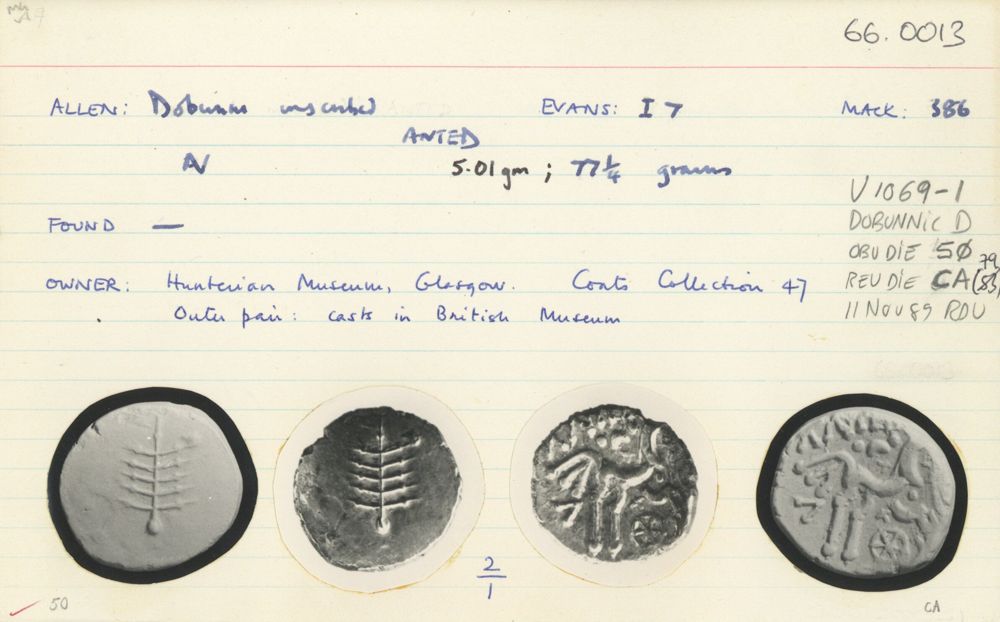 66.0013
ALLEN: Dobunni inscribed EVANS: I 7 MACK: 386
ANTED
AV 5.01gm ; 77 1/4 grains
V1069-1
FOUND — DOBUNNIC D
OBV DIE 50
79
OWNER: Hunterian Museum, Glasgow. Coats Collection 47 REV DIE CA (83)
Outer pair: casts in British Museum 11 NOV 89 RDV
2/1
50 CA